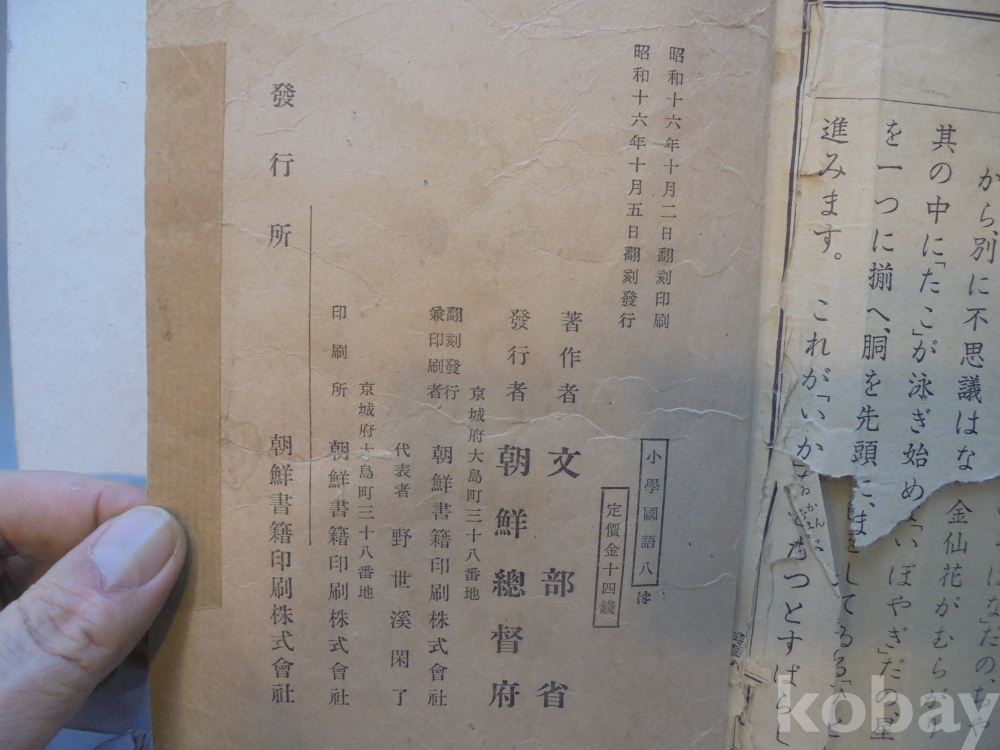 がら、別に不思議はな
其の中に「たこ」が泳ぎ始め
金仙花がむらがり
を一つに揃へ、胴を先頭に、ま
いぼやぎ」だの、星
進みます。これが「いか
つとすばらし
昭和十六年十月二日翻刻印刷
昭和十六年十月五日翻刻發行
小學國語八
定價金十四錢
著作者 文部省
發行者 朝鮮總督府
京城府大島町三十八番地
翻刻發行
兼印刷者 朝鮮書籍印刷株式會社
代表者 野世溪閑了
京城府大島町三十八番地
印刷所 朝鮮書籍印刷株式會社
發行所 朝鮮書籍印刷株式會社
kobay